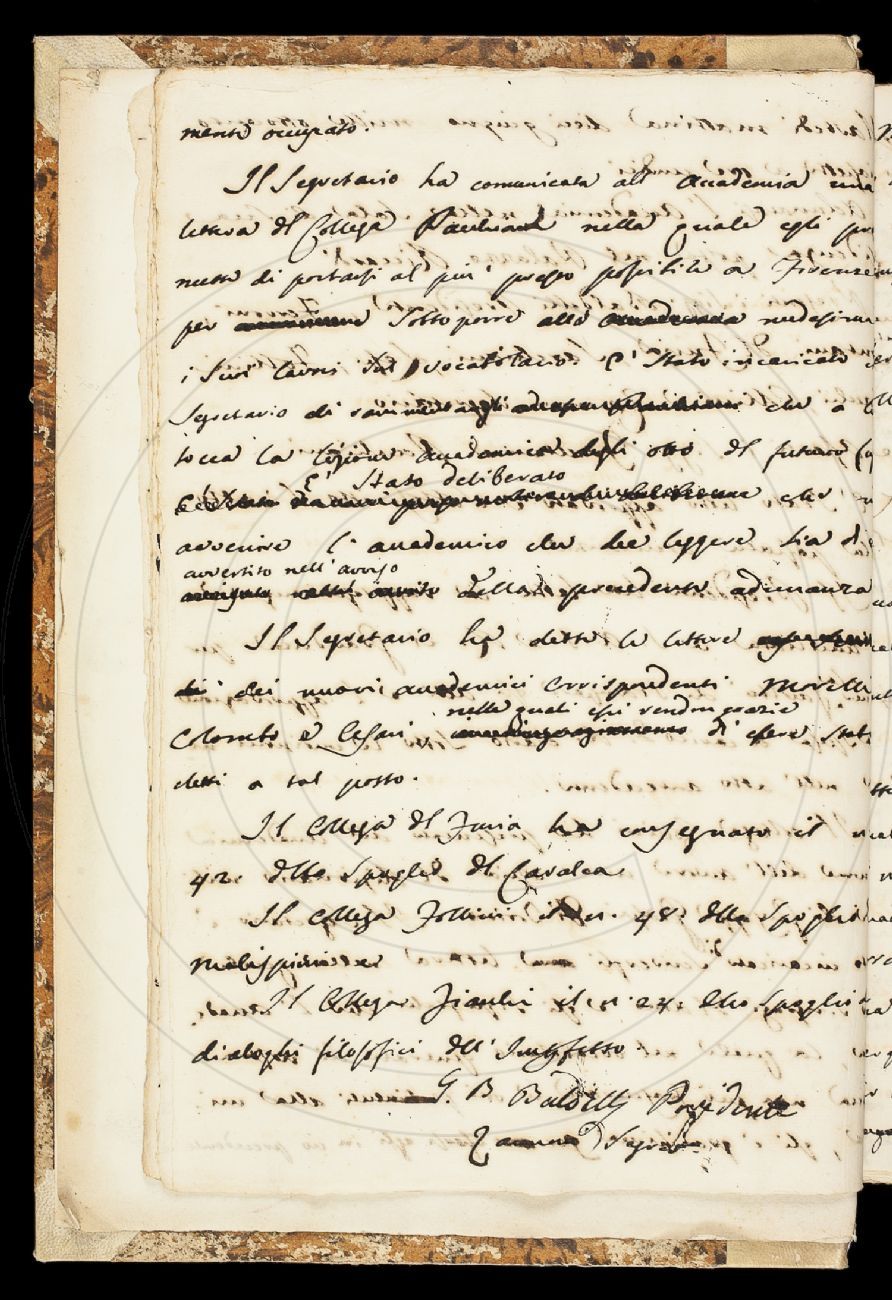 mente occupato.
Il Segretario ha comunicata all' Accademia una
lettera del Collega nella quale egli pro
mette di portarsi al più presso possibile a Firenze
per sottoporre alla medesima
i suoi lavori sul vocabolario. E' stato incaricato
Segretario di che a
tocca la lezione accademica degli otto del futuro
E' stato deliberato
che
avvenire l'accademico che dee leggere sia
avvertito nell'avviso
della precedente adunanza
Il Segretario ha lette le lettere
dei nuovi accademici corrispondenti Morelli
nelle quali essi rendon grazie
Colombo e Cesari di essere stati
eletti a tal posto.
Il Collega del Furia ha consegnato il
42. dello Spoglio del Cavalca
Il Collega Follini il n. 48. dello Spoglio
Malispini
Il Collega Fiacchi il n. 24. dello Spoglio
dialoghi filosofici dell'
G B Baldelli Presidente
Zannoni Segret.